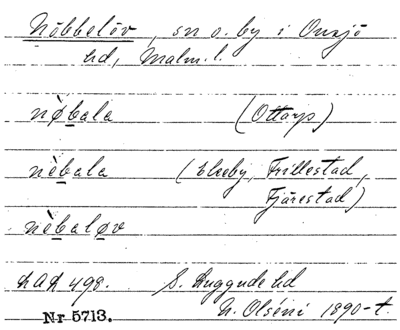 Nöbbelöv, sn o. by i Onsjö
hd, Malm. l.
nø̀bala (Ottarp)
nèbala (Ekeby, Frillestad,
Fjärestad)
nèbaløv
LAL 498. S. Luggude hd
N. Olséni 1890-t.
Nr 5713.